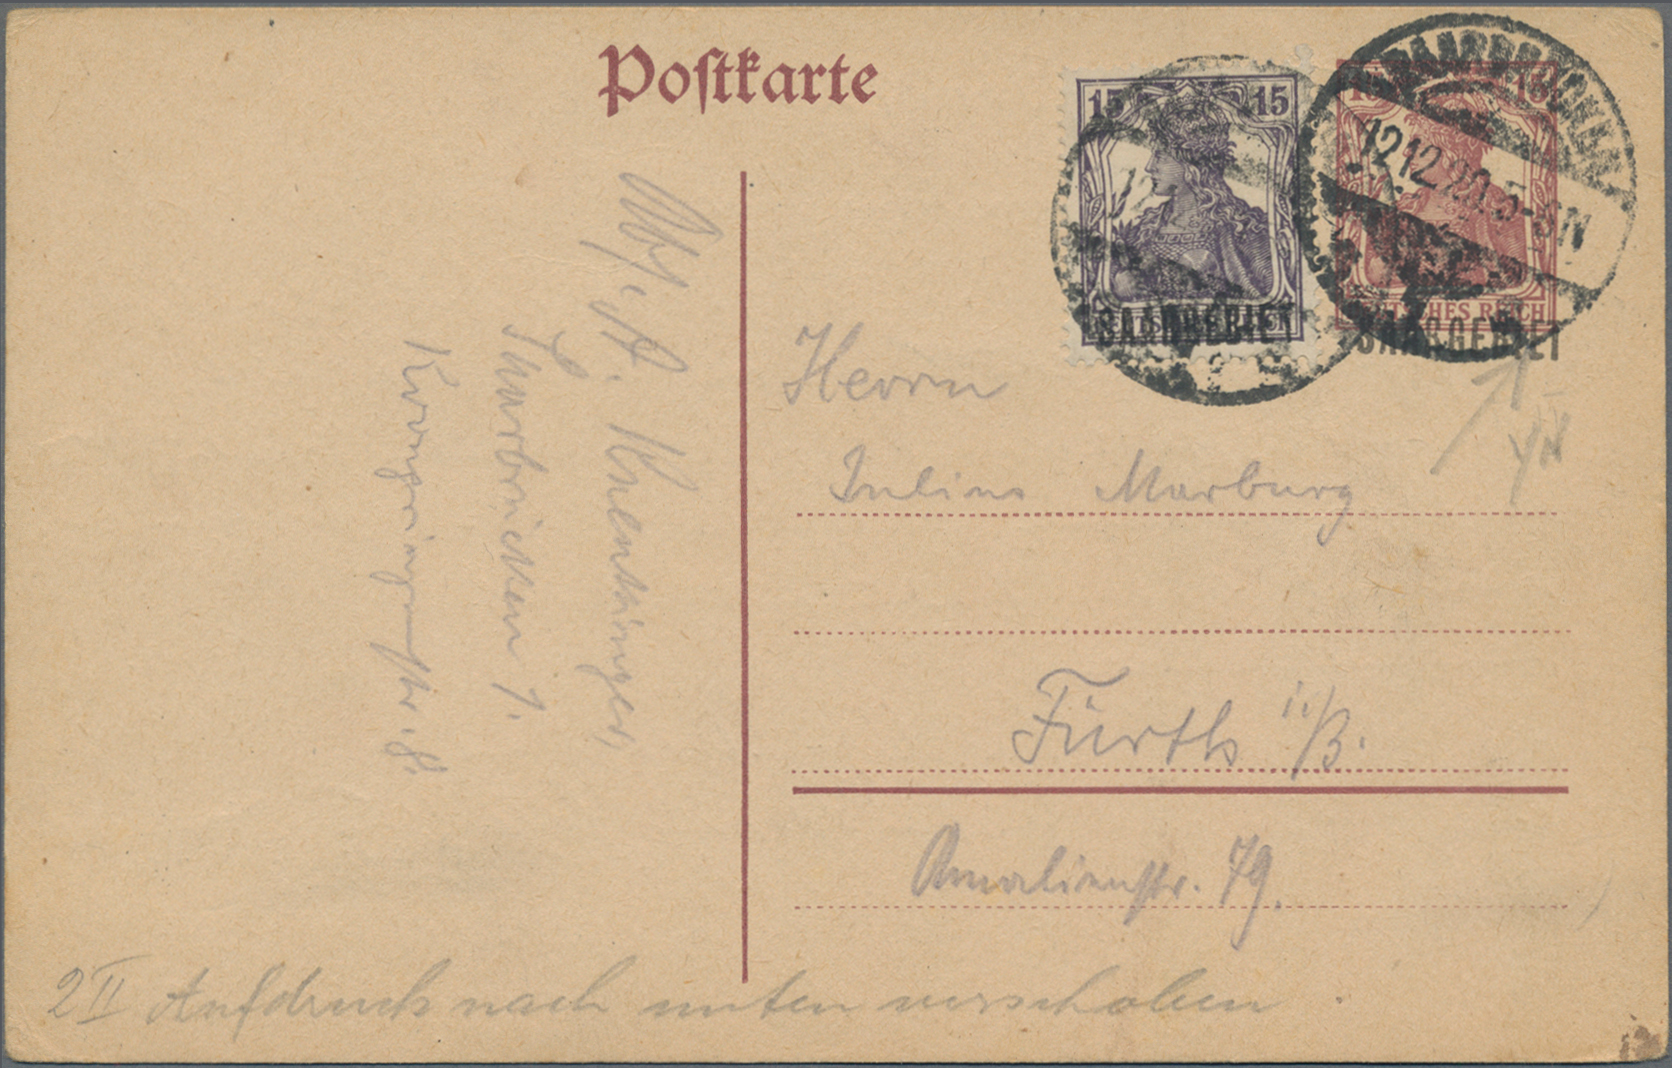 Postkarte
15 15
15 15
12 12 20. 5-6 N
DEUTSCHES REICH
SAARGEBIET
SAARGEBIET
Herrn
Julius Marburg
Fürth i./B.
Amalienstr. 79.
Abs. A.
Saarbrücken 1.
8.
2 II Aufdruck nach unten verschoben